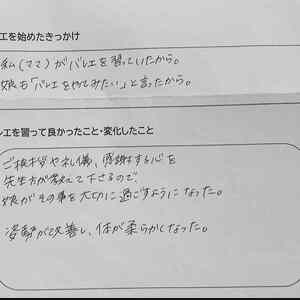 エを始めたきっかけ
私(ママ)がバレエを習っていたから。
娘も「バレエをやってみたい」と言ったから。
レエを習って良かったこと・変化したこと
ご挨拶や礼儀、感謝する心を
先生方が教えて下さるので
娘がその事を大切に過ごすようになった。
姿勢が改善し、体が柔らかくなった。